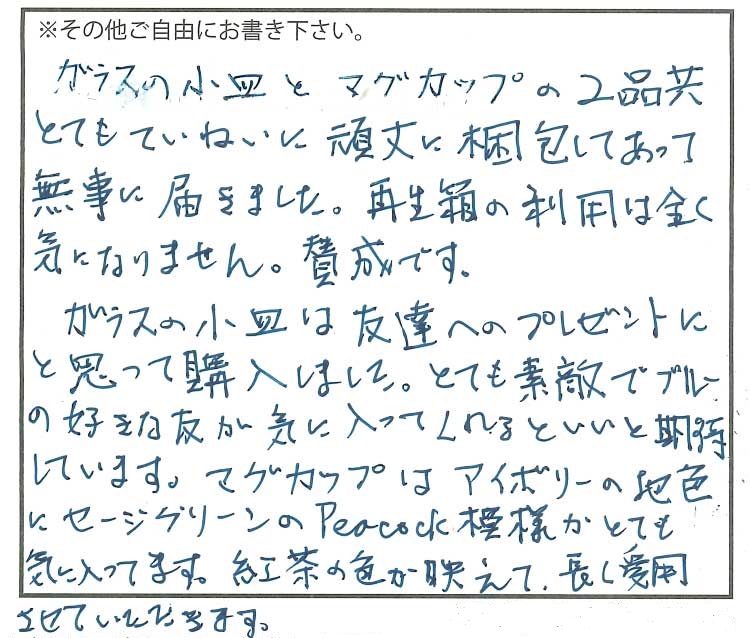 ※その他ご自由にお書き下さい。
ガラスの小皿とマグカップの2品共
とてもていねいに頑丈に梱包してあって
無事に届きました。再生箱の利用は全く
気になりません。賛成です。
ガラスの小皿は友達へのプレゼントに
と思って購入しました。とても素敵でブルー
の好きな友が気に入ってくれるといいと期待
しています。マグカップはアイボリーの地色
にセージグリーンのPeacock模様がとても
気に入ってます。紅茶の色が映えて、長く愛用
させていただきます。